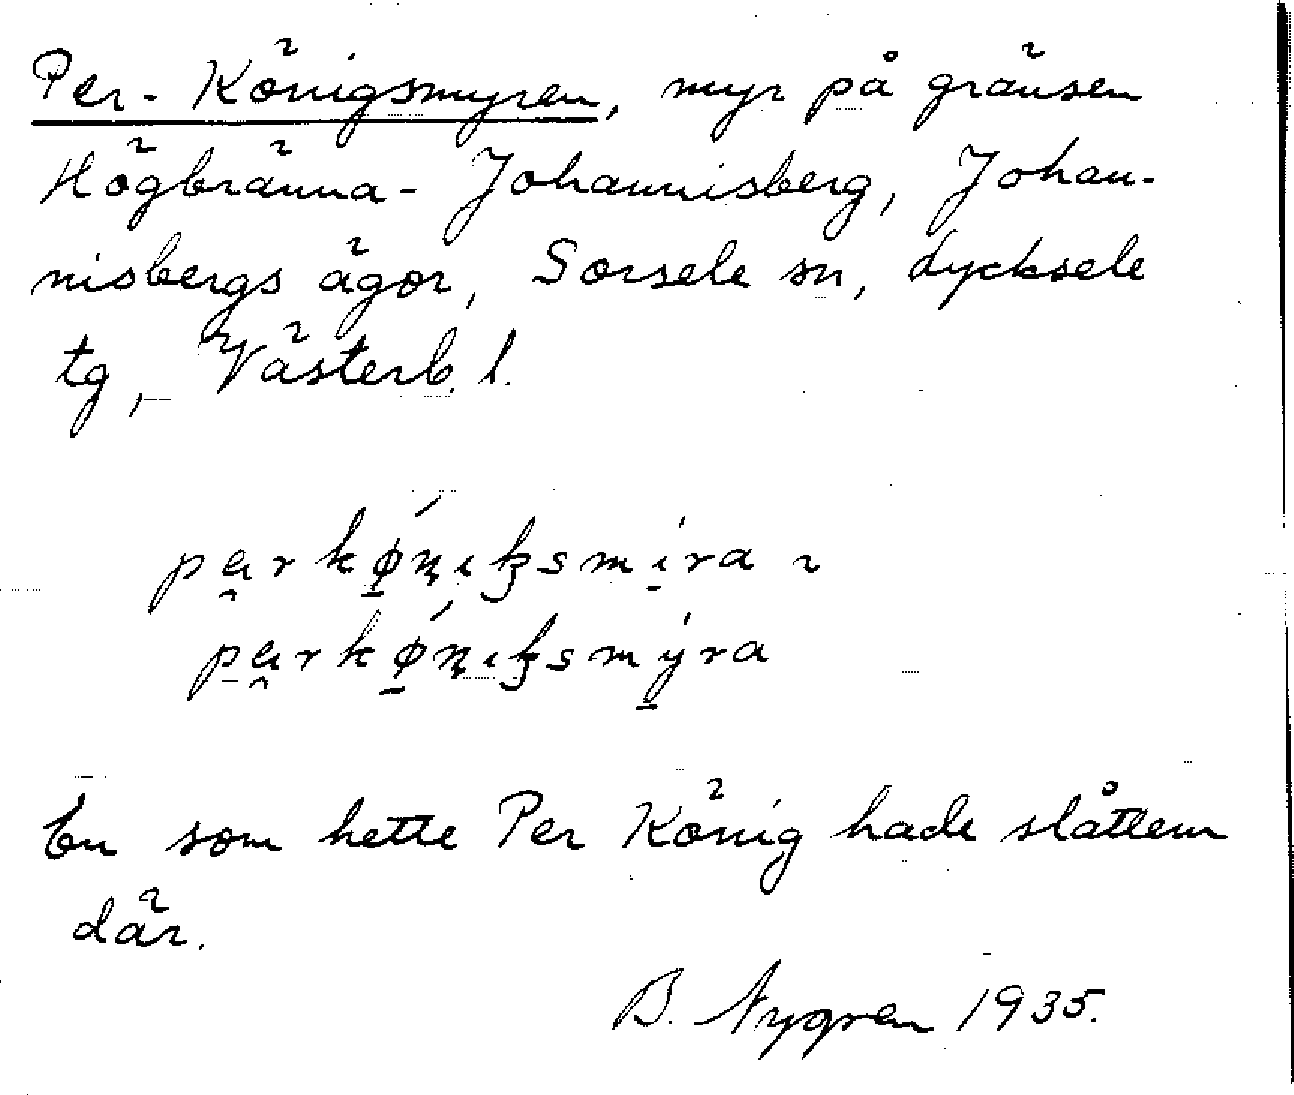 Per-Königsmyren, myr på gränsen
Högbränna - Johannisberg, Johan-
nisbergs ägor, Sorsele sn, Lycksele
tg, Västerb. l.
pa̯rkǿ̱ṇıꞣsmi̱ra ~
pa̯rkǿ̱ṇıꞣsmý̱ra
En som hette Per König hade slåttern
där.
B. Nygren 1935.